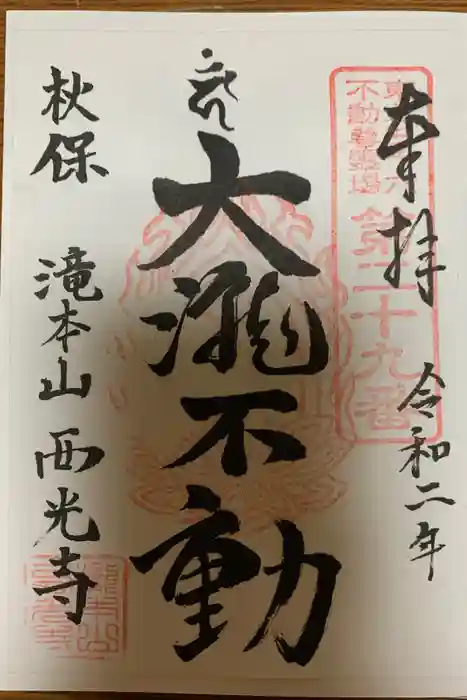 奉拝
令和二年
東北三十六
不動尊霊場
第二十九番
大瀧不動
秋保
滝本山
西光寺